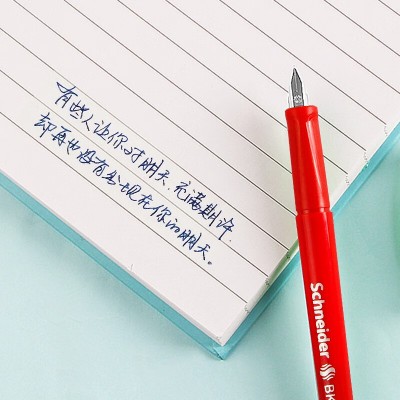 有些人让你对明天.充满期许.
却再也没有出现在你的明天.
Schneider BK